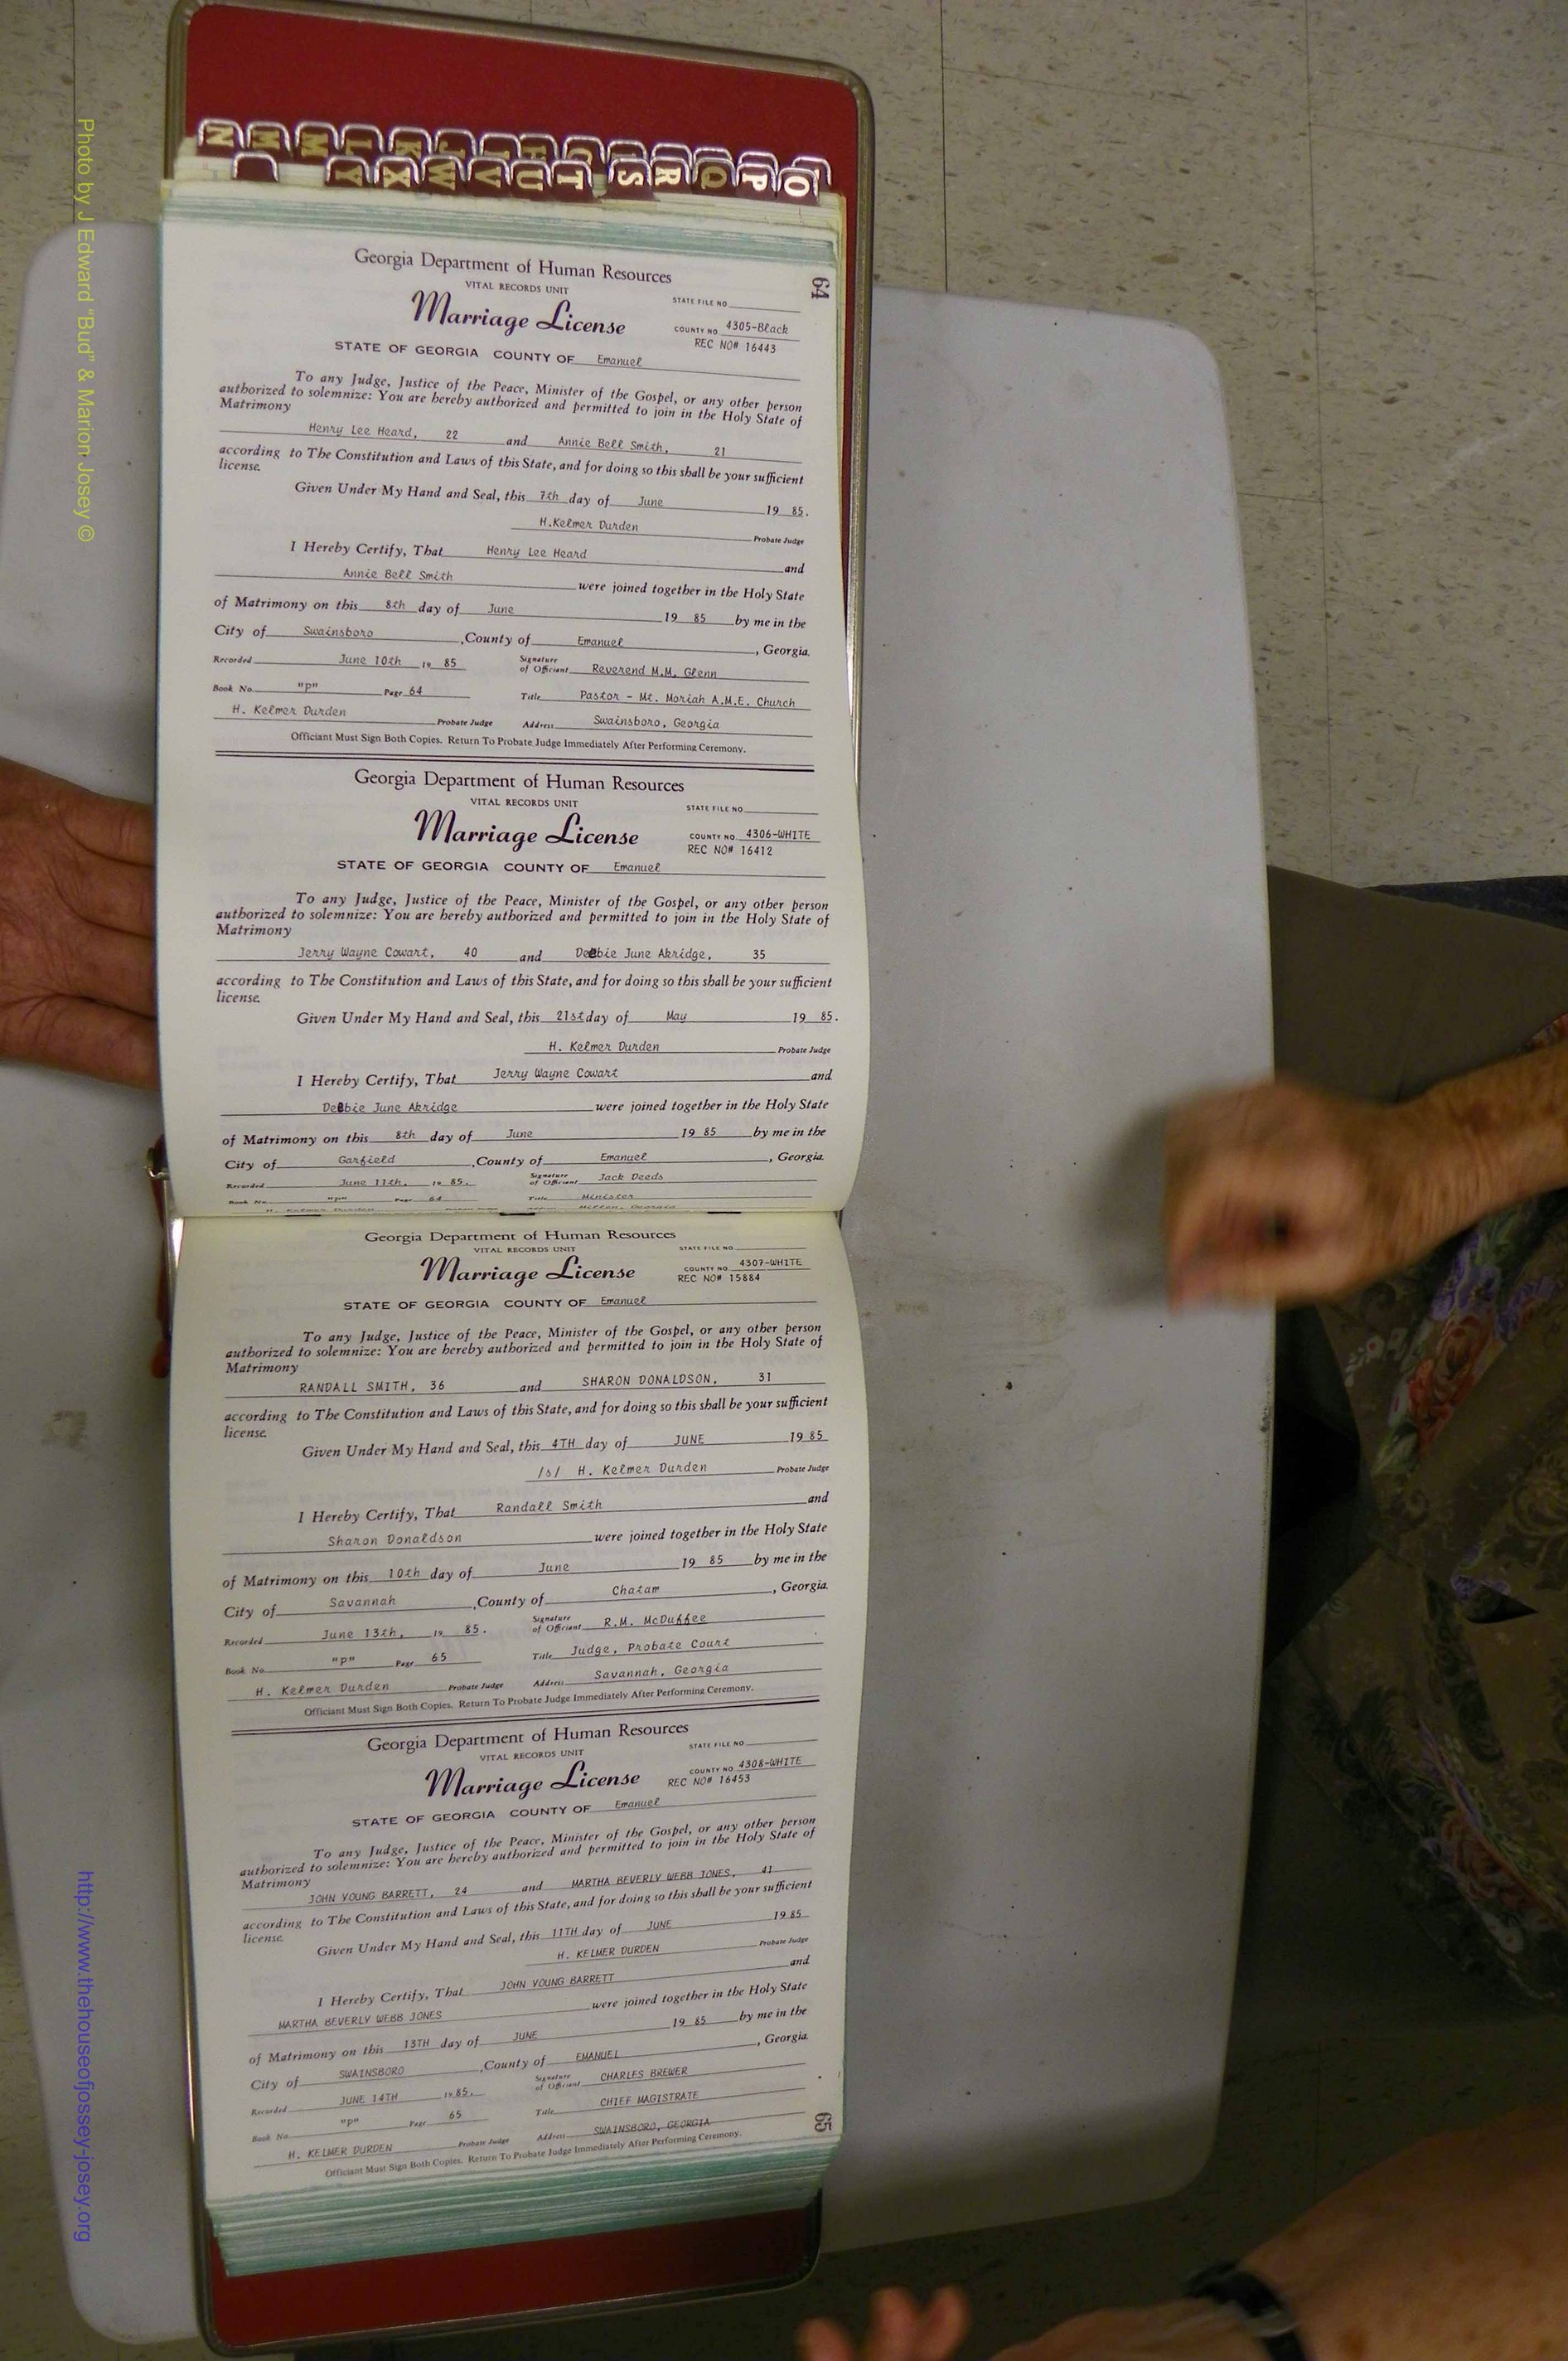 N M M L K J I H G R Q P O
Y X W V U T S R Q P O
64
Georgia Department of Human Resources
VITAL RECORDS UNIT
STATE FILE NO
Marriage License
COUNTY NO 4305-Black
REC NO# 16443
STATE OF GEORGIA COUNTY OF Emanuel
To any Judge, Justice of the Peace, Minister of the Gospel, or any other person
authorized to solemnize: You are hereby authorized and permitted to join in the Holy State of
Matrimony
Henry Lee Heard, 22 and Annie Bell Smith, 21
according to The Constitution and Laws of this State, and for doing so this shall be your sufficient
license.
Given Under My Hand and Seal, this 7th day of June 19 85.
H.Kelmer Durden Probate Judge
I Hereby Certify, That Henry Lee Heard and
Annie Bell Smith were joined together in the Holy State
of Matrimony on this 8th day of June 19 85 by me in the
City of Swainsboro , County of Emanuel , Georgia.
Recorded June 10th 19 85 Signature of Officiant Reverend M.M. Glenn
Book No. "P" Page 64 Title Pastor - Mt. Moriah A.M.E. Church
H. Kelmer Durden Probate Judge Address Swainsboro, Georgia
Officiant Must Sign Both Copies. Return To Probate Judge Immediately After Performing Ceremony.
Georgia Department of Human Resources
VITAL RECORDS UNIT
STATE FILE NO
Marriage License
COUNTY NO 4306-WHITE
REC NO# 16412
STATE OF GEORGIA COUNTY OF Emanuel
To any Judge, Justice of the Peace, Minister of the Gospel, or any other person
authorized to solemnize: You are hereby authorized and permitted to join in the Holy State of
Matrimony
Jerry Wayne Cowart, 40 and Debbie June Akridge, 35
according to The Constitution and Laws of this State, and for doing so this shall be your sufficient
license.
Given Under My Hand and Seal, this 21st day of May 19 85.
H. Kelmer Durden Probate Judge
I Hereby Certify, That Jerry Wayne Cowart and
Debbie June Akridge were joined together in the Holy State
of Matrimony on this 8th day of June 19 85 by me in the
City of Garfield , County of Emanuel , Georgia.
Recorded June 11th, 19 85. Signature of Officiant Jack Deeds
Book No. "P" Page 64 Title Minister
H. Kelmer Durden
Georgia Department of Human Resources
VITAL RECORDS UNIT
STATE FILE NO
Marriage License
COUNTY NO 4307-WHITE
REC NO# 15884
STATE OF GEORGIA COUNTY OF Emanuel
To any Judge, Justice of the Peace, Minister of the Gospel, or any other person
authorized to solemnize: You are hereby authorized and permitted to join in the Holy State of
Matrimony
RANDALL SMITH, 36 and SHARON DONALDSON, 31
according to The Constitution and Laws of this State, and for doing so this shall be your sufficient
license.
Given Under My Hand and Seal, this 4TH day of JUNE 19 85
/s/ H. Kelmer Durden Probate Judge
I Hereby Certify, That Randall Smith and
Sharon Donaldson were joined together in the Holy State
of Matrimony on this 10th day of June 19 85 by me in the
City of Savannah , County of Chatam , Georgia.
Recorded June 13th, 19 85. Signature of Officiant R.M. McDuffee
Book No. "P" Page 65 Title Judge, Probate Court
H. Kelmer Durden Probate Judge Address Savannah, Georgia
Officiant Must Sign Both Copies. Return To Probate Judge Immediately After Performing Ceremony.
Georgia Department of Human Resources
VITAL RECORDS UNIT
STATE FILE NO
Marriage License
COUNTY NO 4308-WHITE
REC NO# 16453
STATE OF GEORGIA COUNTY OF Emanuel
To any Judge, Justice of the Peace, Minister of the Gospel, or any other person
authorized to solemnize: You are hereby authorized and permitted to join in the Holy State of
Matrimony
JOHN YOUNG BARRETT, 24 and MARTHA BEVERLY WEBB JONES, 41
according to The Constitution and Laws of this State, and for doing so this shall be your sufficient
license.
Given Under My Hand and Seal, this 11TH day of JUNE 19 85
H. KELMER DURDEN Probate Judge
I Hereby Certify, That JOHN YOUNG BARRETT and
MARTHA BEVERLY WEBB JONES were joined together in the Holy State
of Matrimony on this 13TH day of JUNE 19 85 by me in the
City of SWAINSBORO , County of EMANUEL , Georgia.
Recorded JUNE 14TH 19 85. Signature of Officiant CHARLES BREWER
Book No. "P" Page 65 Title CHIEF MAGISTRATE
H. KELMER DURDEN Probate Judge Address SWAINSBORO, GEORGIA
Officiant Must Sign Both Copies. Return To Probate Judge Immediately After Performing Ceremony.
65
Photo by J Edward "Bud" & Marion Josey ©
http://www.thehouseofjossey-josey.org